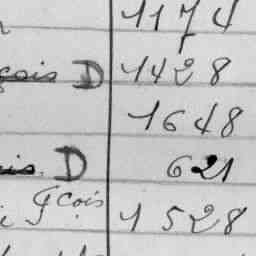 1174
çois D 1428
1648
is. D 621
Fçois
1528